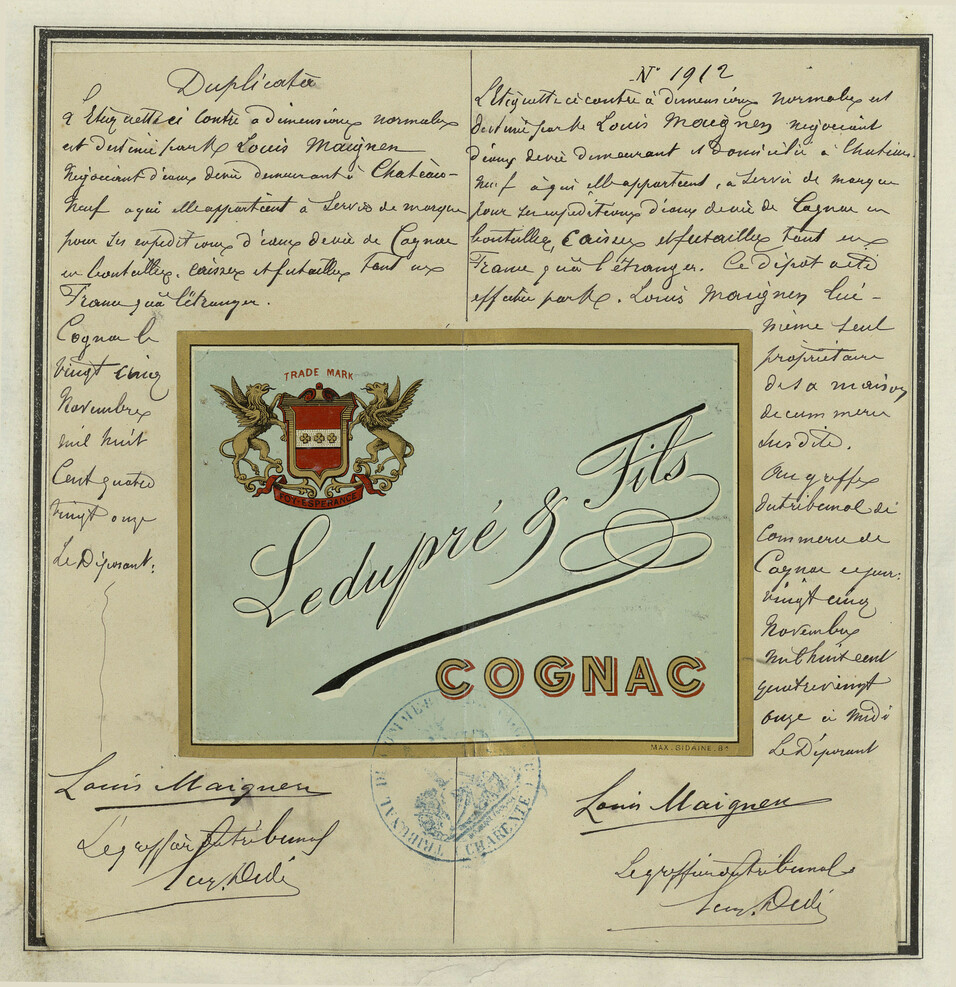 Duplicata
L'étiquette ci contre à dimensions normales
est destinée par Mr Louis Maignen
Négociant d'eaux de vie demeurant à Château-
neuf a qui elle appartient à servir de marque
pour ses expeditions d'eaux de vie de Cognac
en bouteilles, caisses et futailles tant en
France qu'à l'étranger.
Cognac le
vingt cinq
Novembre
mil huit
Cent quatre
vingt onze
Le Déposant:
Louis Maignen
Le greffier du tribunal
N° 1912
L'étiquette ci contre à dimensions normales est
destinée par Mr Louis Maignen négociant
d'eaux de vie demeurant et domicilié à Château-
neuf à qui elle appartient, à servir de marque
pour ses expéditions d'eaux de vie de Cognac en
bouteilles, caisses et futailles tant en
France qu'à l'étranger. Ce dépot a été
effectué par Mr. Louis Maignen lui-
même seul
propriétaire
de sa maison
de commerce
susdite.
Au greffe
du tribunal de
Commerce de
Cognac ce jour:
vingt cinq
Novembre
mil huit cent
quatre vingt
onze à midi
Le Déposant
Louis Maignen
Le greffier du tribunal
TRADE MARK
FOY-ESPERANCE
Ledupré & Fils
COGNAC
MAX. SIDAINE. Bx
TRIBUNAL DE COMMERCE
CHARENTE